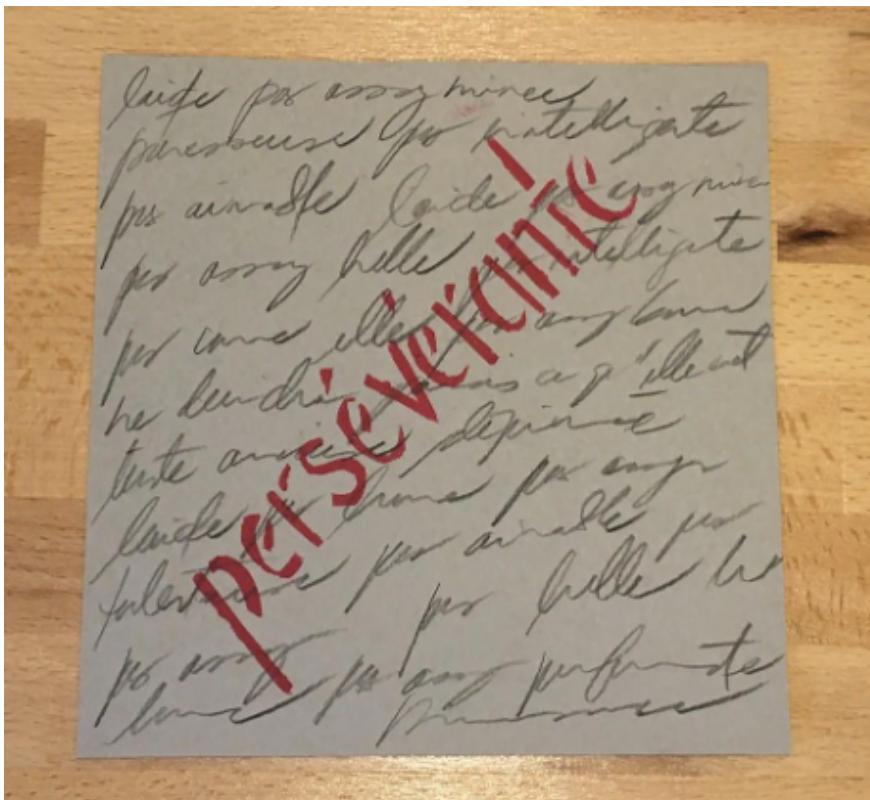 laide pas assez mince
paresseuse pas intelligente
pas aimable laide pas assez mince
pas assez belle pas intelligente
pas comme elle pas assez bonne
ne deviendra jamais ce qu'elle veut
triste anxieuse déprimée
laide pas bonne pas assez
talentueuse pas aimable pas
pas assez pas belle
bonne pas assez performante
persévérante